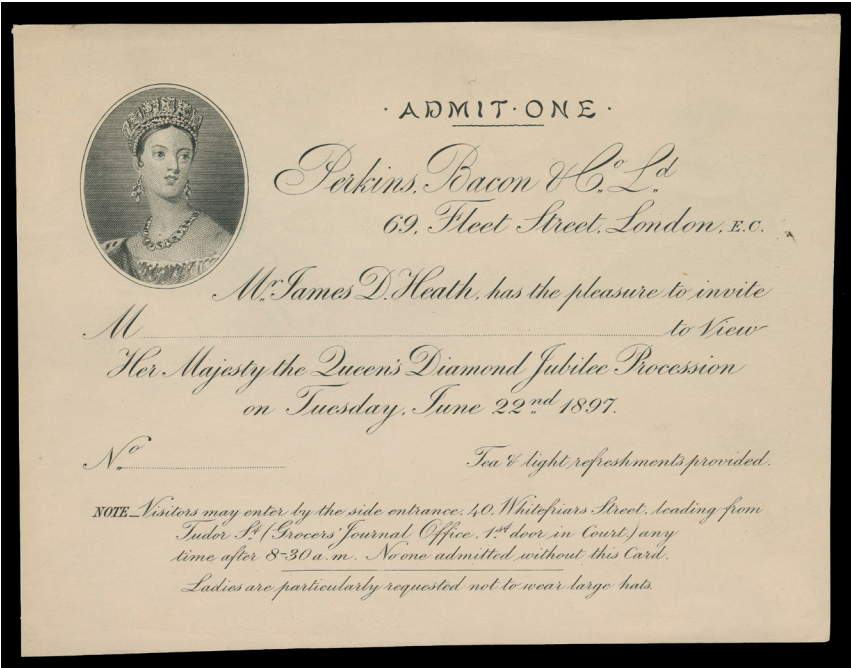 · ADMIT · ONE ·
Perkins, Bacon & Co. Ld.
69, Fleet Street, London, E.C.
Mr. James D. Heath, has the pleasure to invite
M to View
Her Majesty the Queen's Diamond Jubilee Procession
on Tuesday, June 22nd 1897.
No. Tea & light refreshments provided.
NOTE_Visitors may enter by the side entrance, 40, Whitefriars Street, leading from
Tudor St. (Grocers' Journal Office, 1st door in Court.) any
time after 8-30 a.m. No one admitted without this Card.
Ladies are particularly requested not to wear large hats.